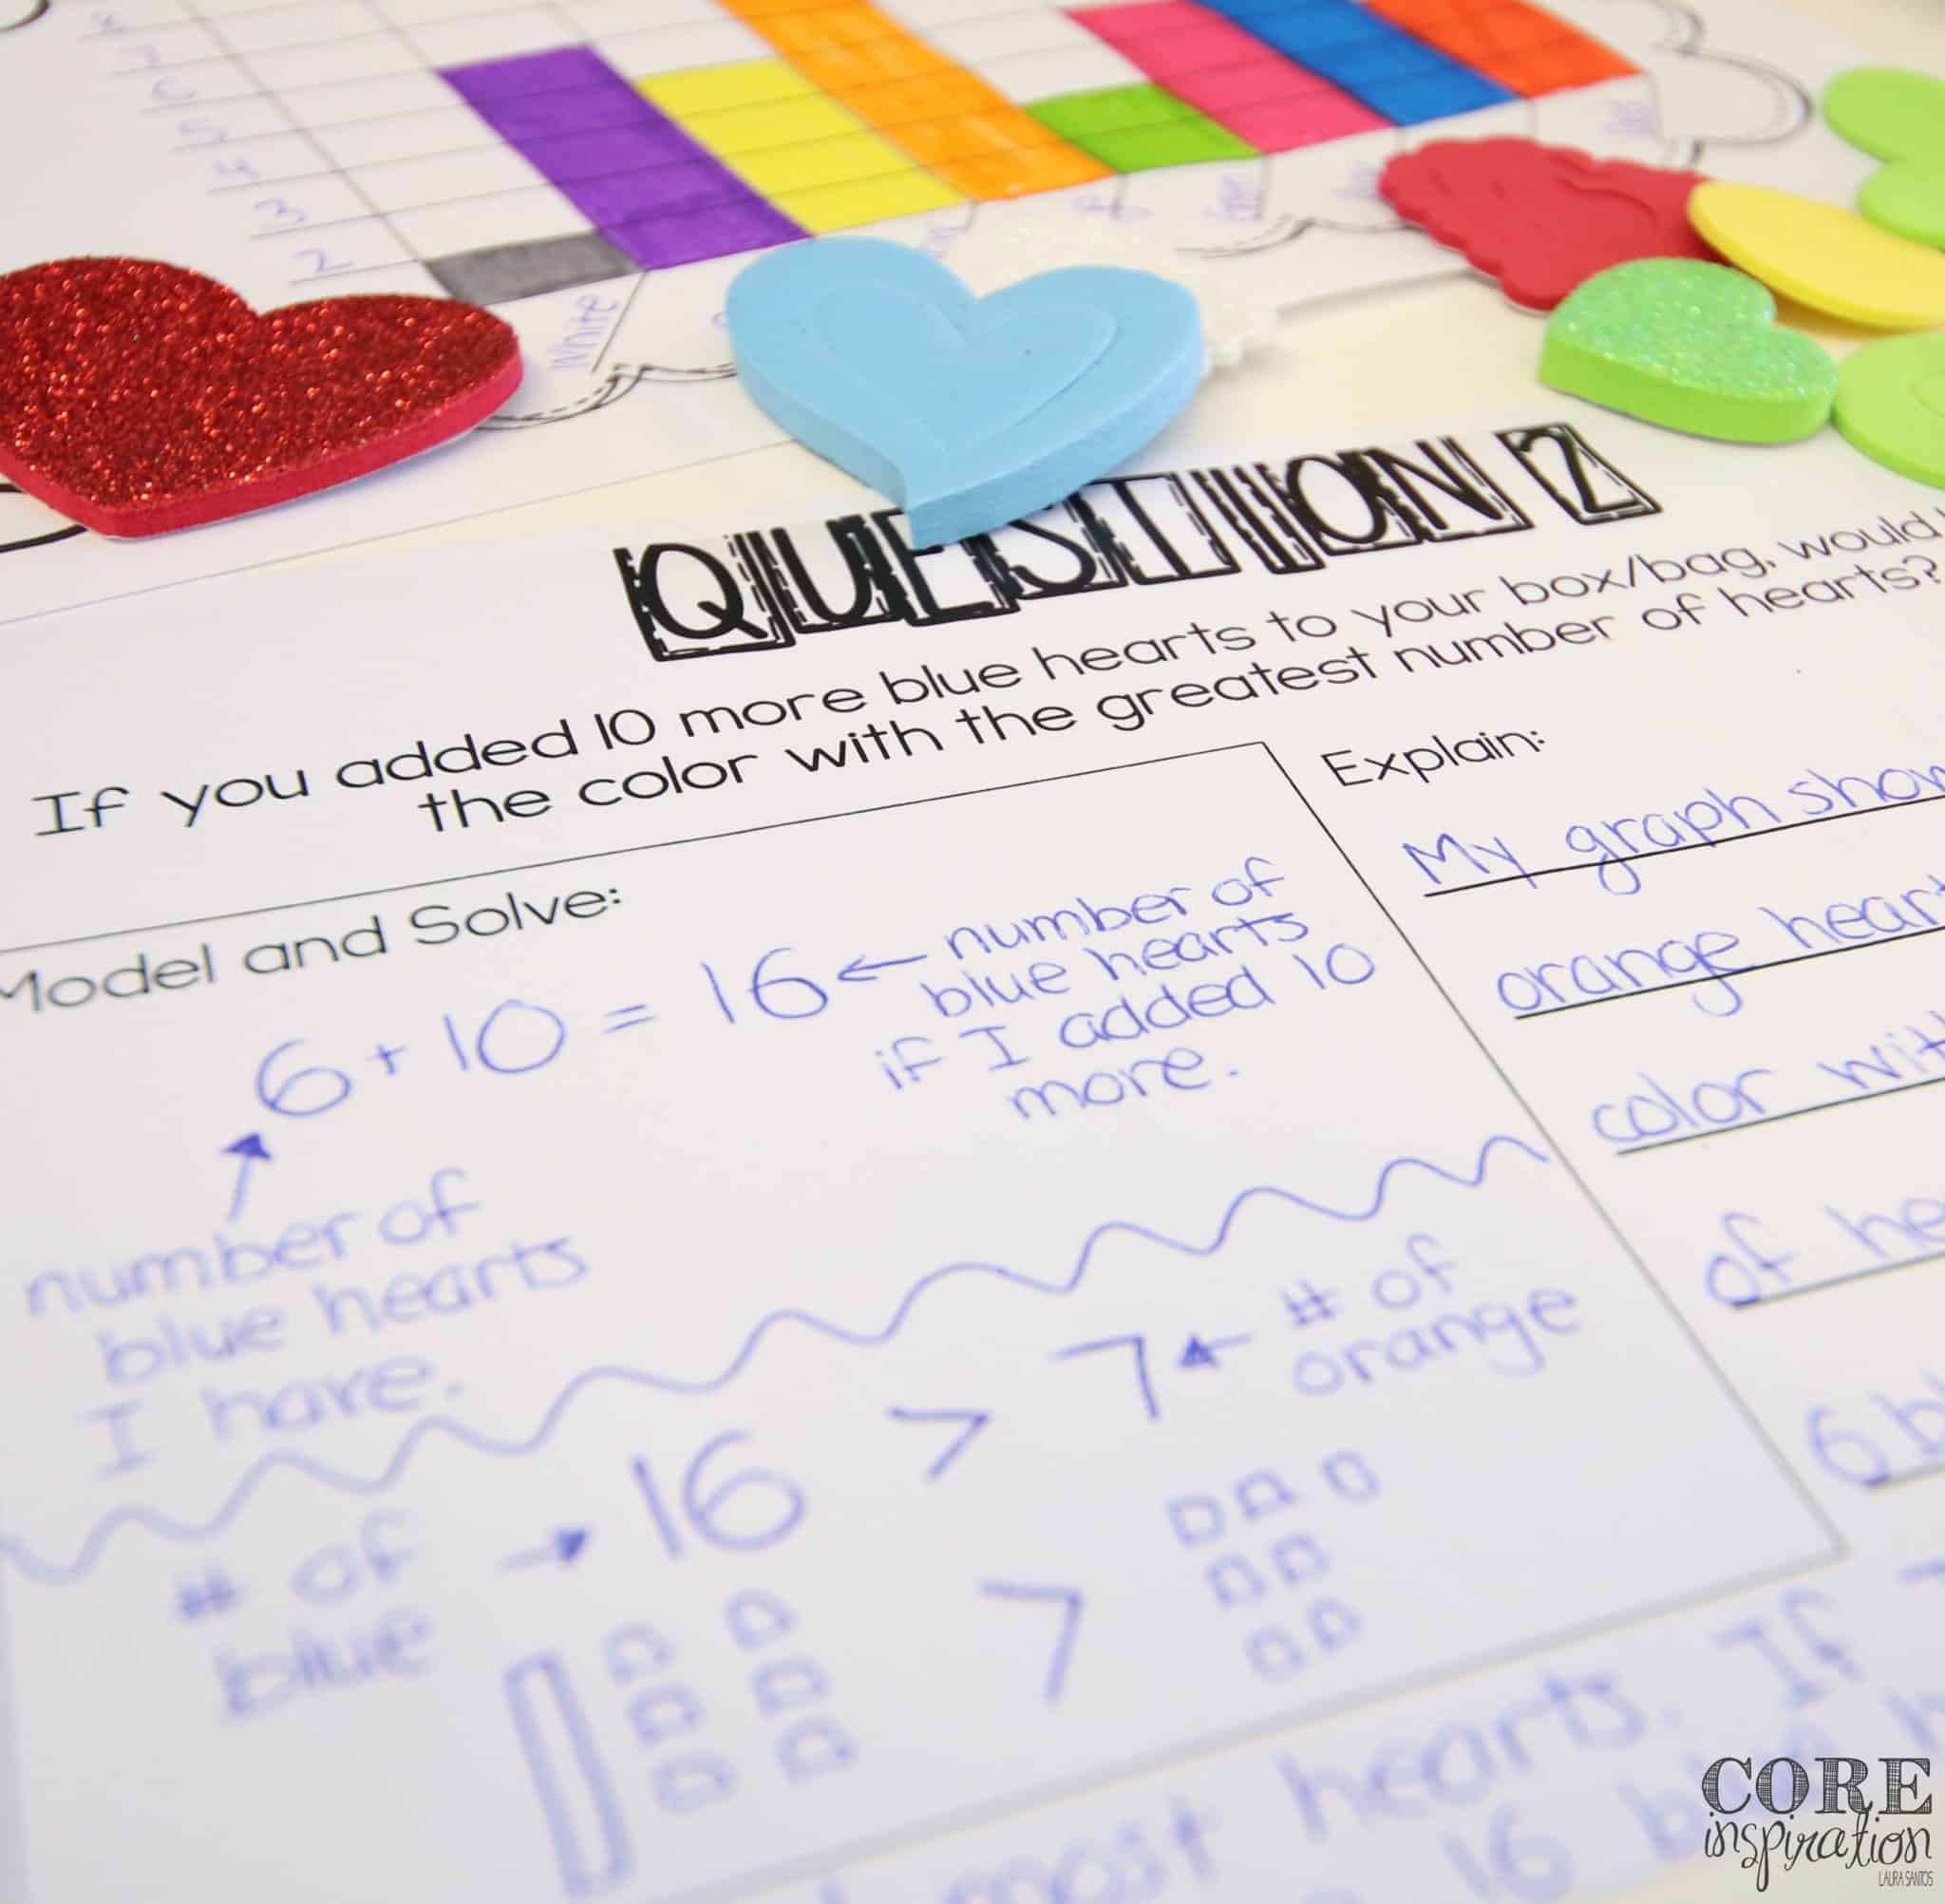 8
7
6
5
4
3
2
White
QUESTION 2
If you added 10 more blue hearts to your box/bag, would
the color with the greatest number of hearts?
Model and Solve:
6 + 10 = 16 ← number of
blue hearts
if I added 10
more.
number of
blue hearts
I have.
# of
blue → 16 > 7 ← # of
orange
>
Explain:
My graph show
orange heart
color wit
of he
6 b
most hearts. If
16 b
CORE
inspiration
LAURA SANTOS